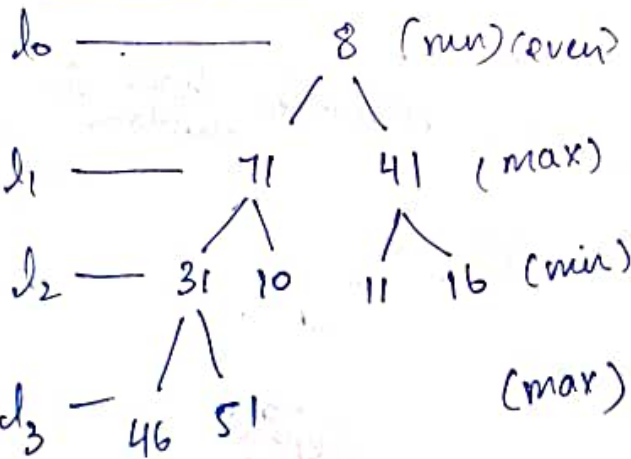 l0 8 (min) (even)
l1 71 41 (max)
l2 31 10 11 16 (min)
l3 46 51 (max)